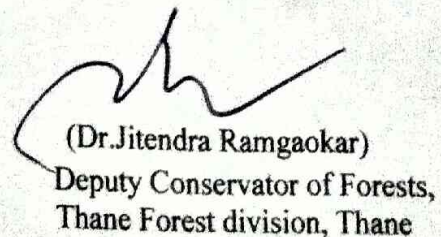 (Dr.Jitendra Ramgaokar)
Deputy Conservator of Forests,
Thane Forest division, Thane